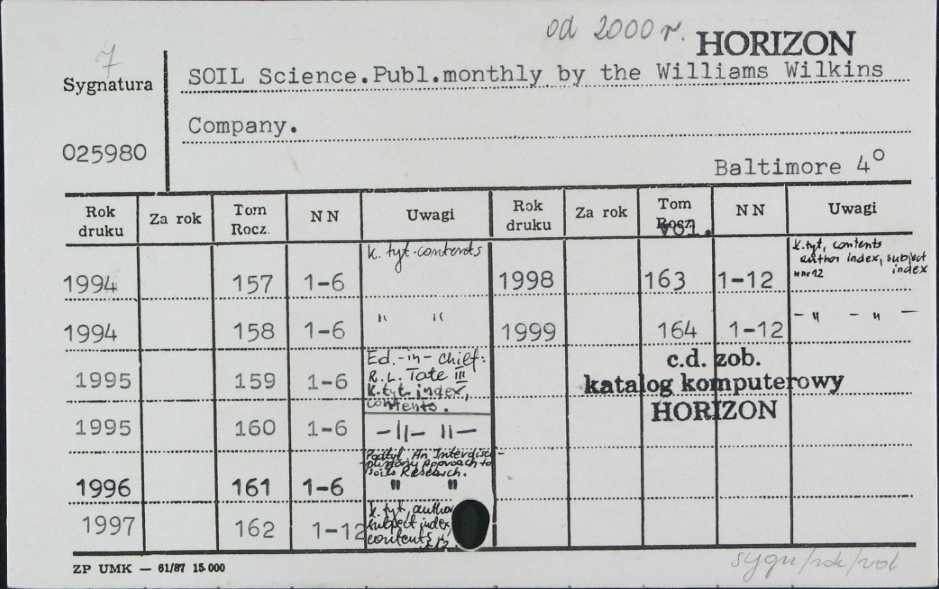 od 2000 r. HORIZON
7
Sygnatura
SOIL Science.Publ.monthly by the Williams Wilkins
Company.
025980
Baltimore 4°
Rok druku Za rok Tom Rocz. NN Uwagi Rok druku Za rok Tom Rocz. vol. NN Uwagi
1994 157 1-6 k. tyt. contents 1998 163 1-12 k.tyt, contents author index, subject index w nr 12
1994 158 1-6 " " 1999 164 1-12 - " - " -
1995 159 1-6 Ed.-in-chief: R.L. Tate III k.tyt. index, contents.
c.d. zob.
katalog komputerowy
HORIZON
1995 160 1-6 -"- "-
1996 161 1-6 Podtyt. An Interdisciplinary Approach to Soils Research. " "
1997 162 1-12 k.tyt, author subject index contents
ZP UMK — 61/87 15 000
sygn/rok/vol